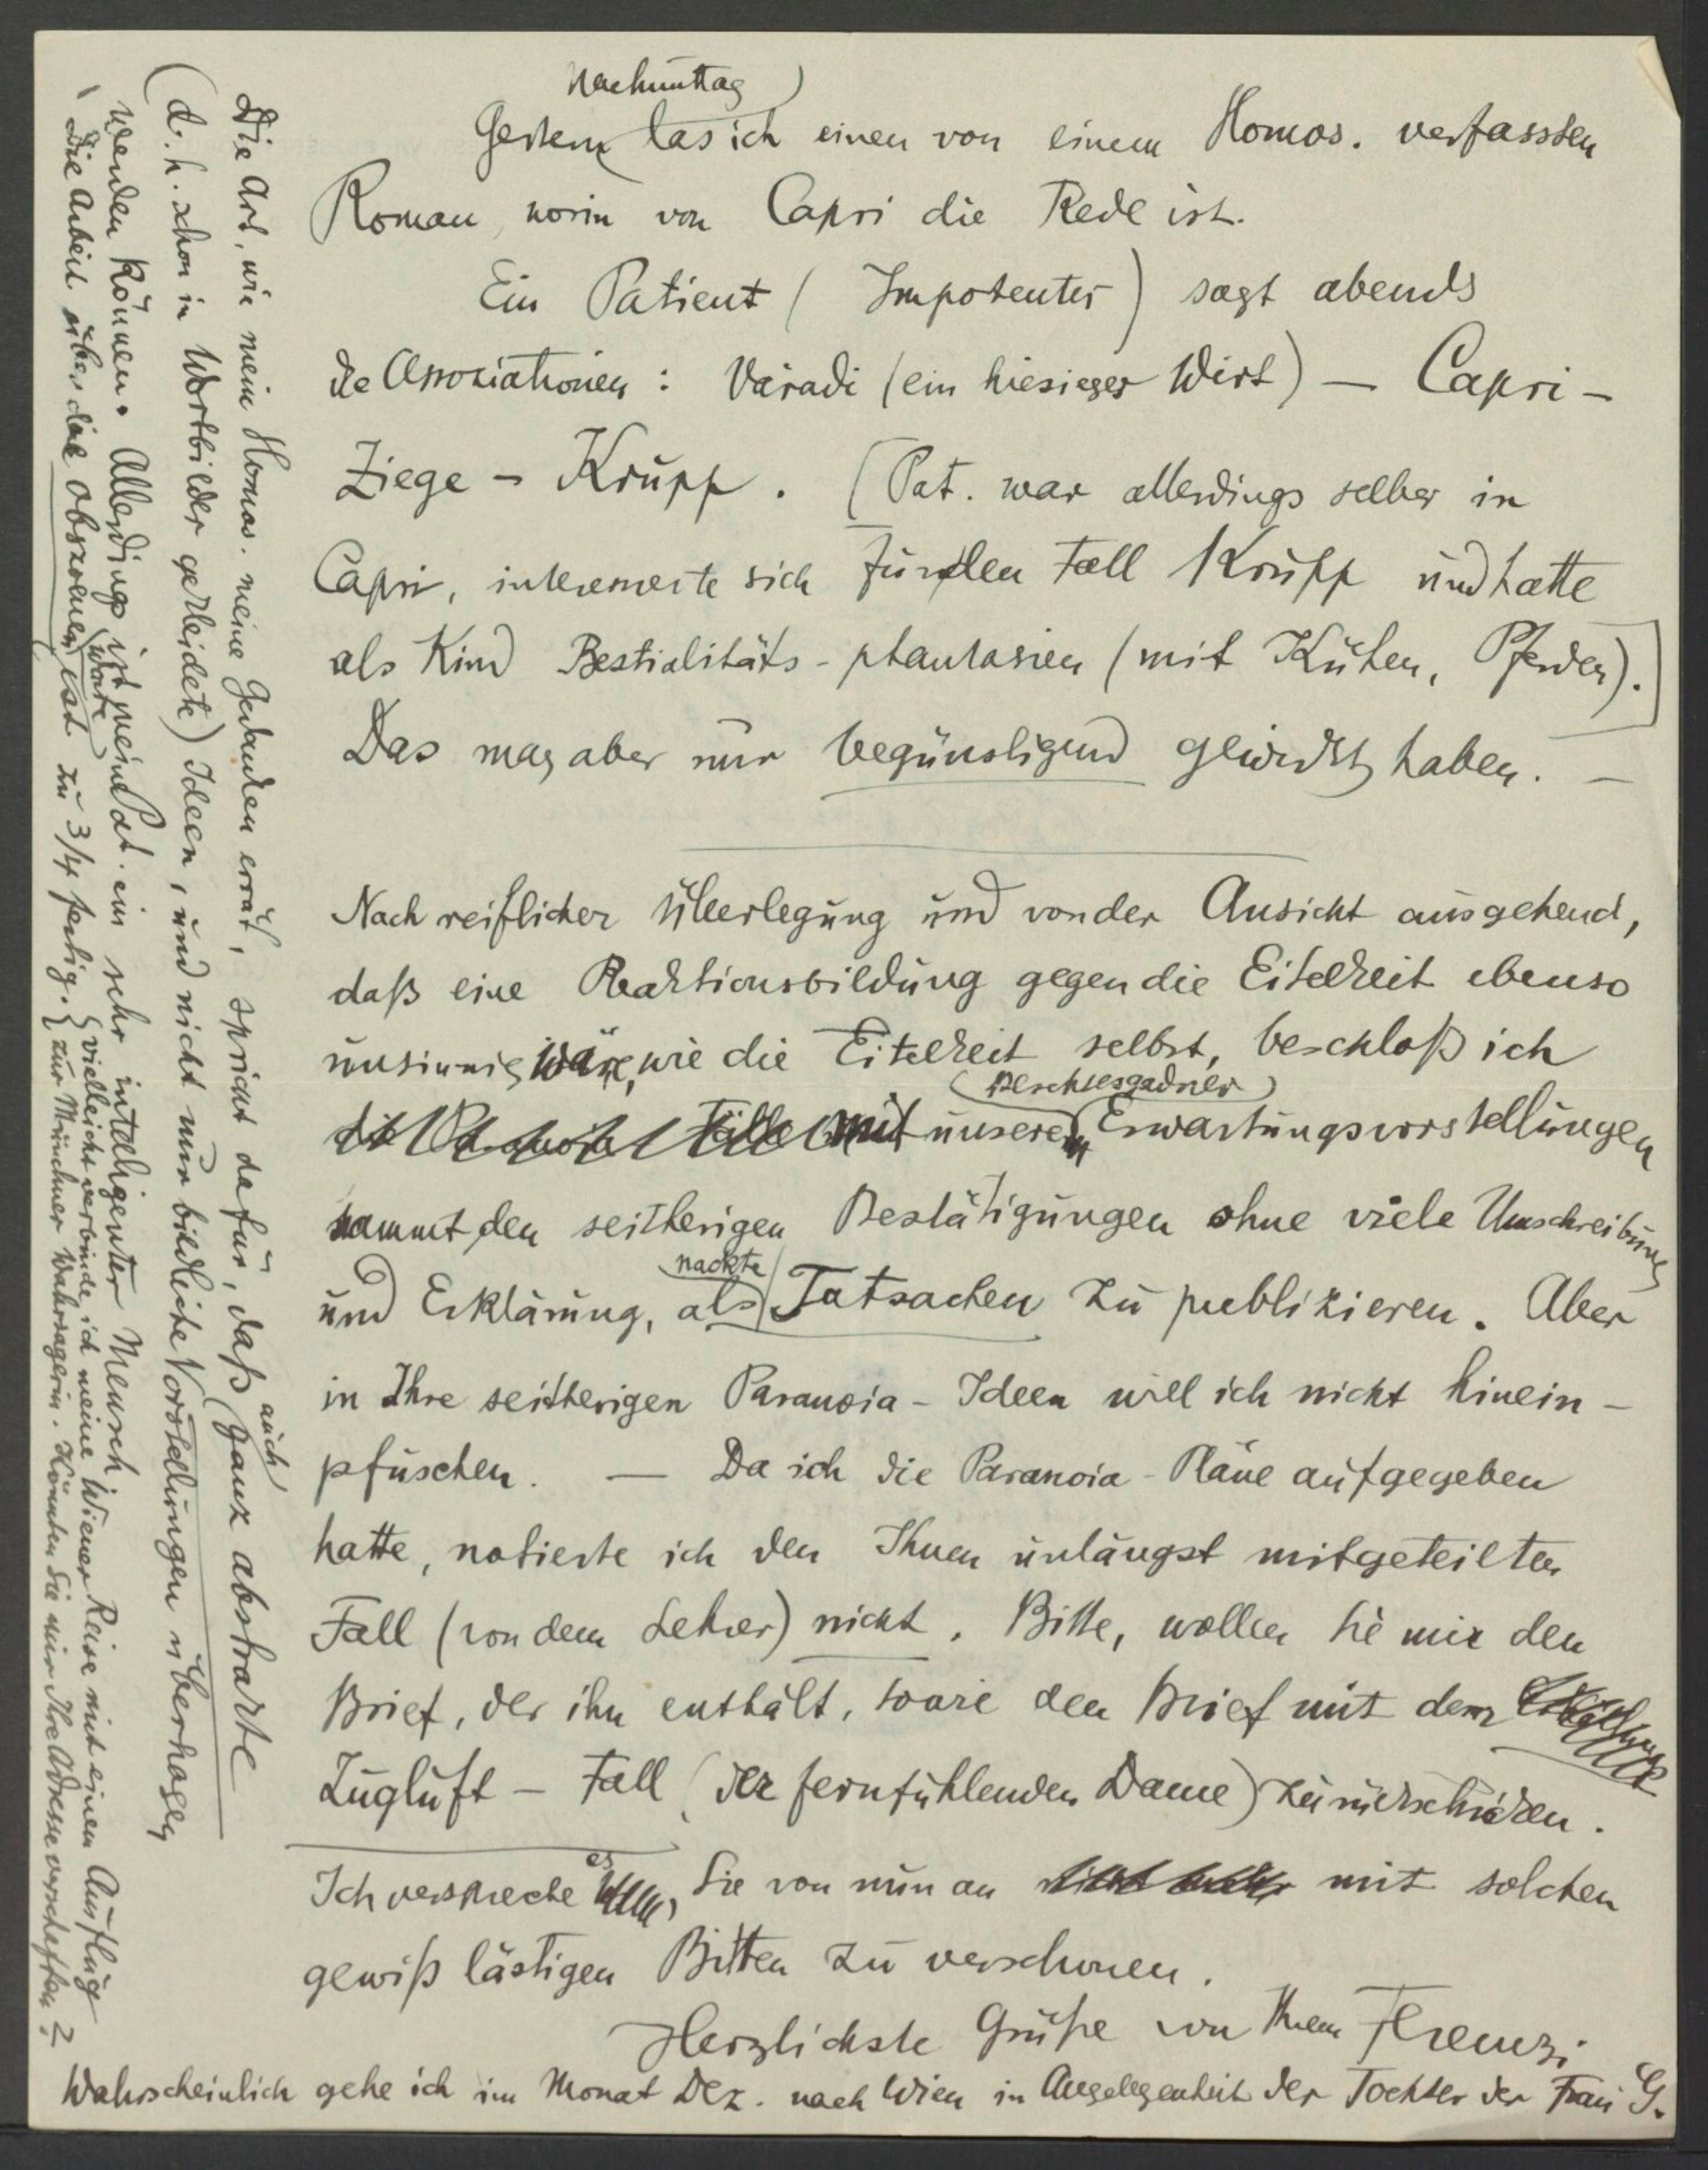 Nachmittag
Gestern las ich einen von einem Homos. verfassten
Roman, worin von Capri die Rede ist.
Ein Patient (Impotenter) sagt abends
die Assoziationen: Váradi (ein hiesiger Wirt) — Capri —
Ziege — Krupp. [Pat. war allerdings selber in
Capri, interessierte sich für den Fall Krupp und hatte
als Kind Bestialitäts-phantasien (mit Kühen, Pferden).]
Das mag aber nur begünstigend gewirkt haben. —
Nach reiflicher Überlegung und von der Ansicht ausgehend,
daß eine Reaktionsbildung gegen die Eitelkeit ebenso
unsinnig wäre, wie die Eitelkeit selbst, beschloß ich
Berchtesgadner
mit unseren Erwartungsvorstellungen
sammt den seitherigen Bestätigungen ohne viele Umschreibung
nackte
und Erklärung, als Tatsachen zu publizieren. Aber
in Ihre seitherigen Paranoia-Ideen will ich nicht hinein-
pfuschen. — Da ich die Paranoia-Pläne aufgegeben
hatte, notierte ich den Ihnen unlängst mitgeteilten
Fall (von dem Lehrer) nicht. Bitte, wollen Sie mir den
Brief, der ihn enthält, sowie den Brief mit dem
Zugluft-Fall (der fernfühlenden Dame) zurückschicken.
es
Ich verspreche Sie von nun an mit solchen
gewiß lästigen Bitten zu verschonen.
Herzlichste Grüße von Ihrem Ferenczi
Wahrscheinlich gehe ich im Monat Dez. nach Wien in Angelegenheit der Tochter der Frau G.
Die Art, wie mein Homos. meine Gedanken errät, spricht dafür, daß auch ganz abstrakte
(d. h. schon in Wortbilder gekleidete) Ideen, und nicht nur bildliche Vorstellungen überhagen
werden können. Allerdings ist mein Pat. ein sehr intelligenter Mensch.
Die Arbeit über die obszönen Worte ist zu 3/4 fertig.
{ vielleicht verbinde ich meine Wiener Reise mit einem Ausflug
zur Münchner Wahrsagerin. Könnten Sie mir Ihre Adresse verschaffen?